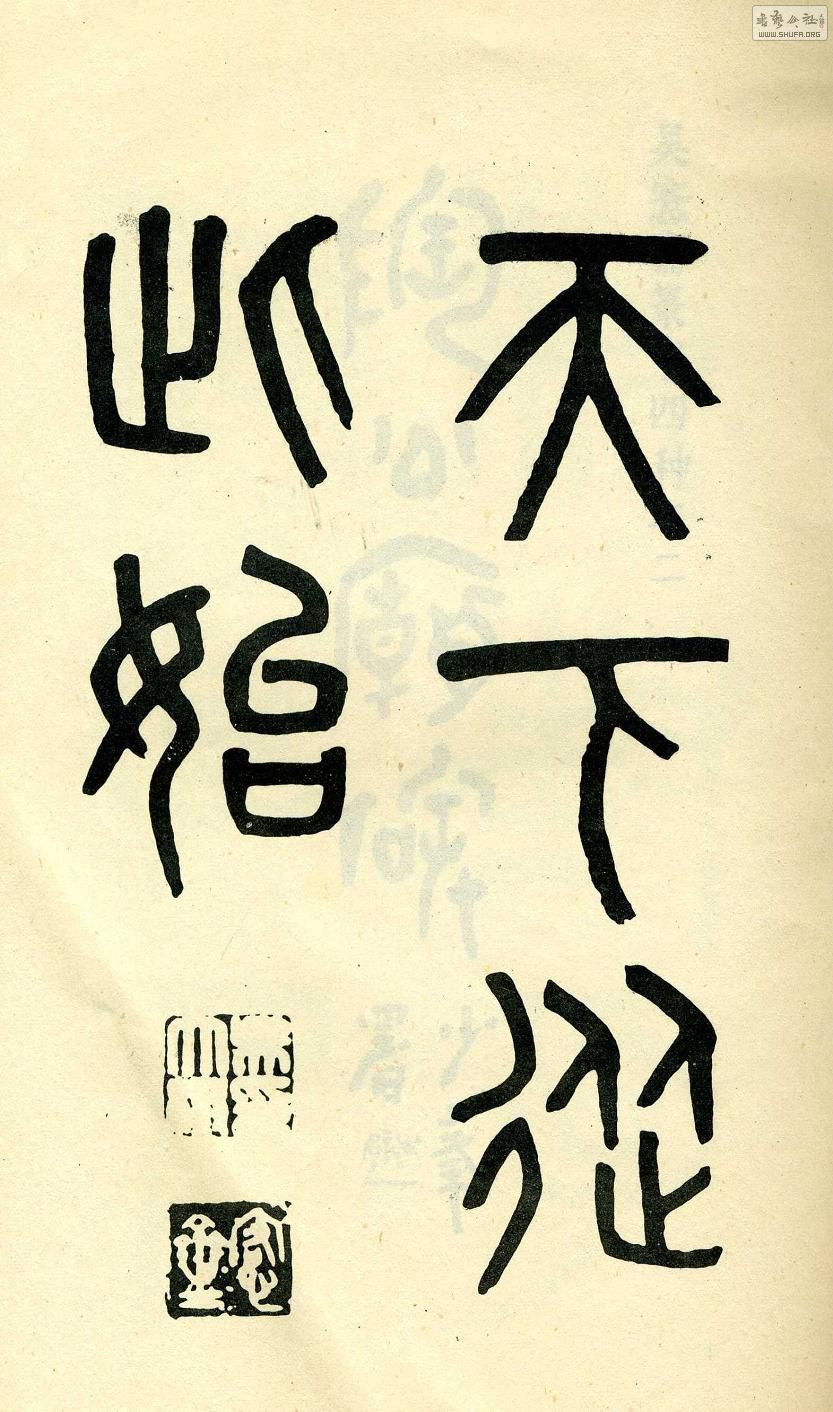 天下從
此始
WWW.SHUFA.ORG